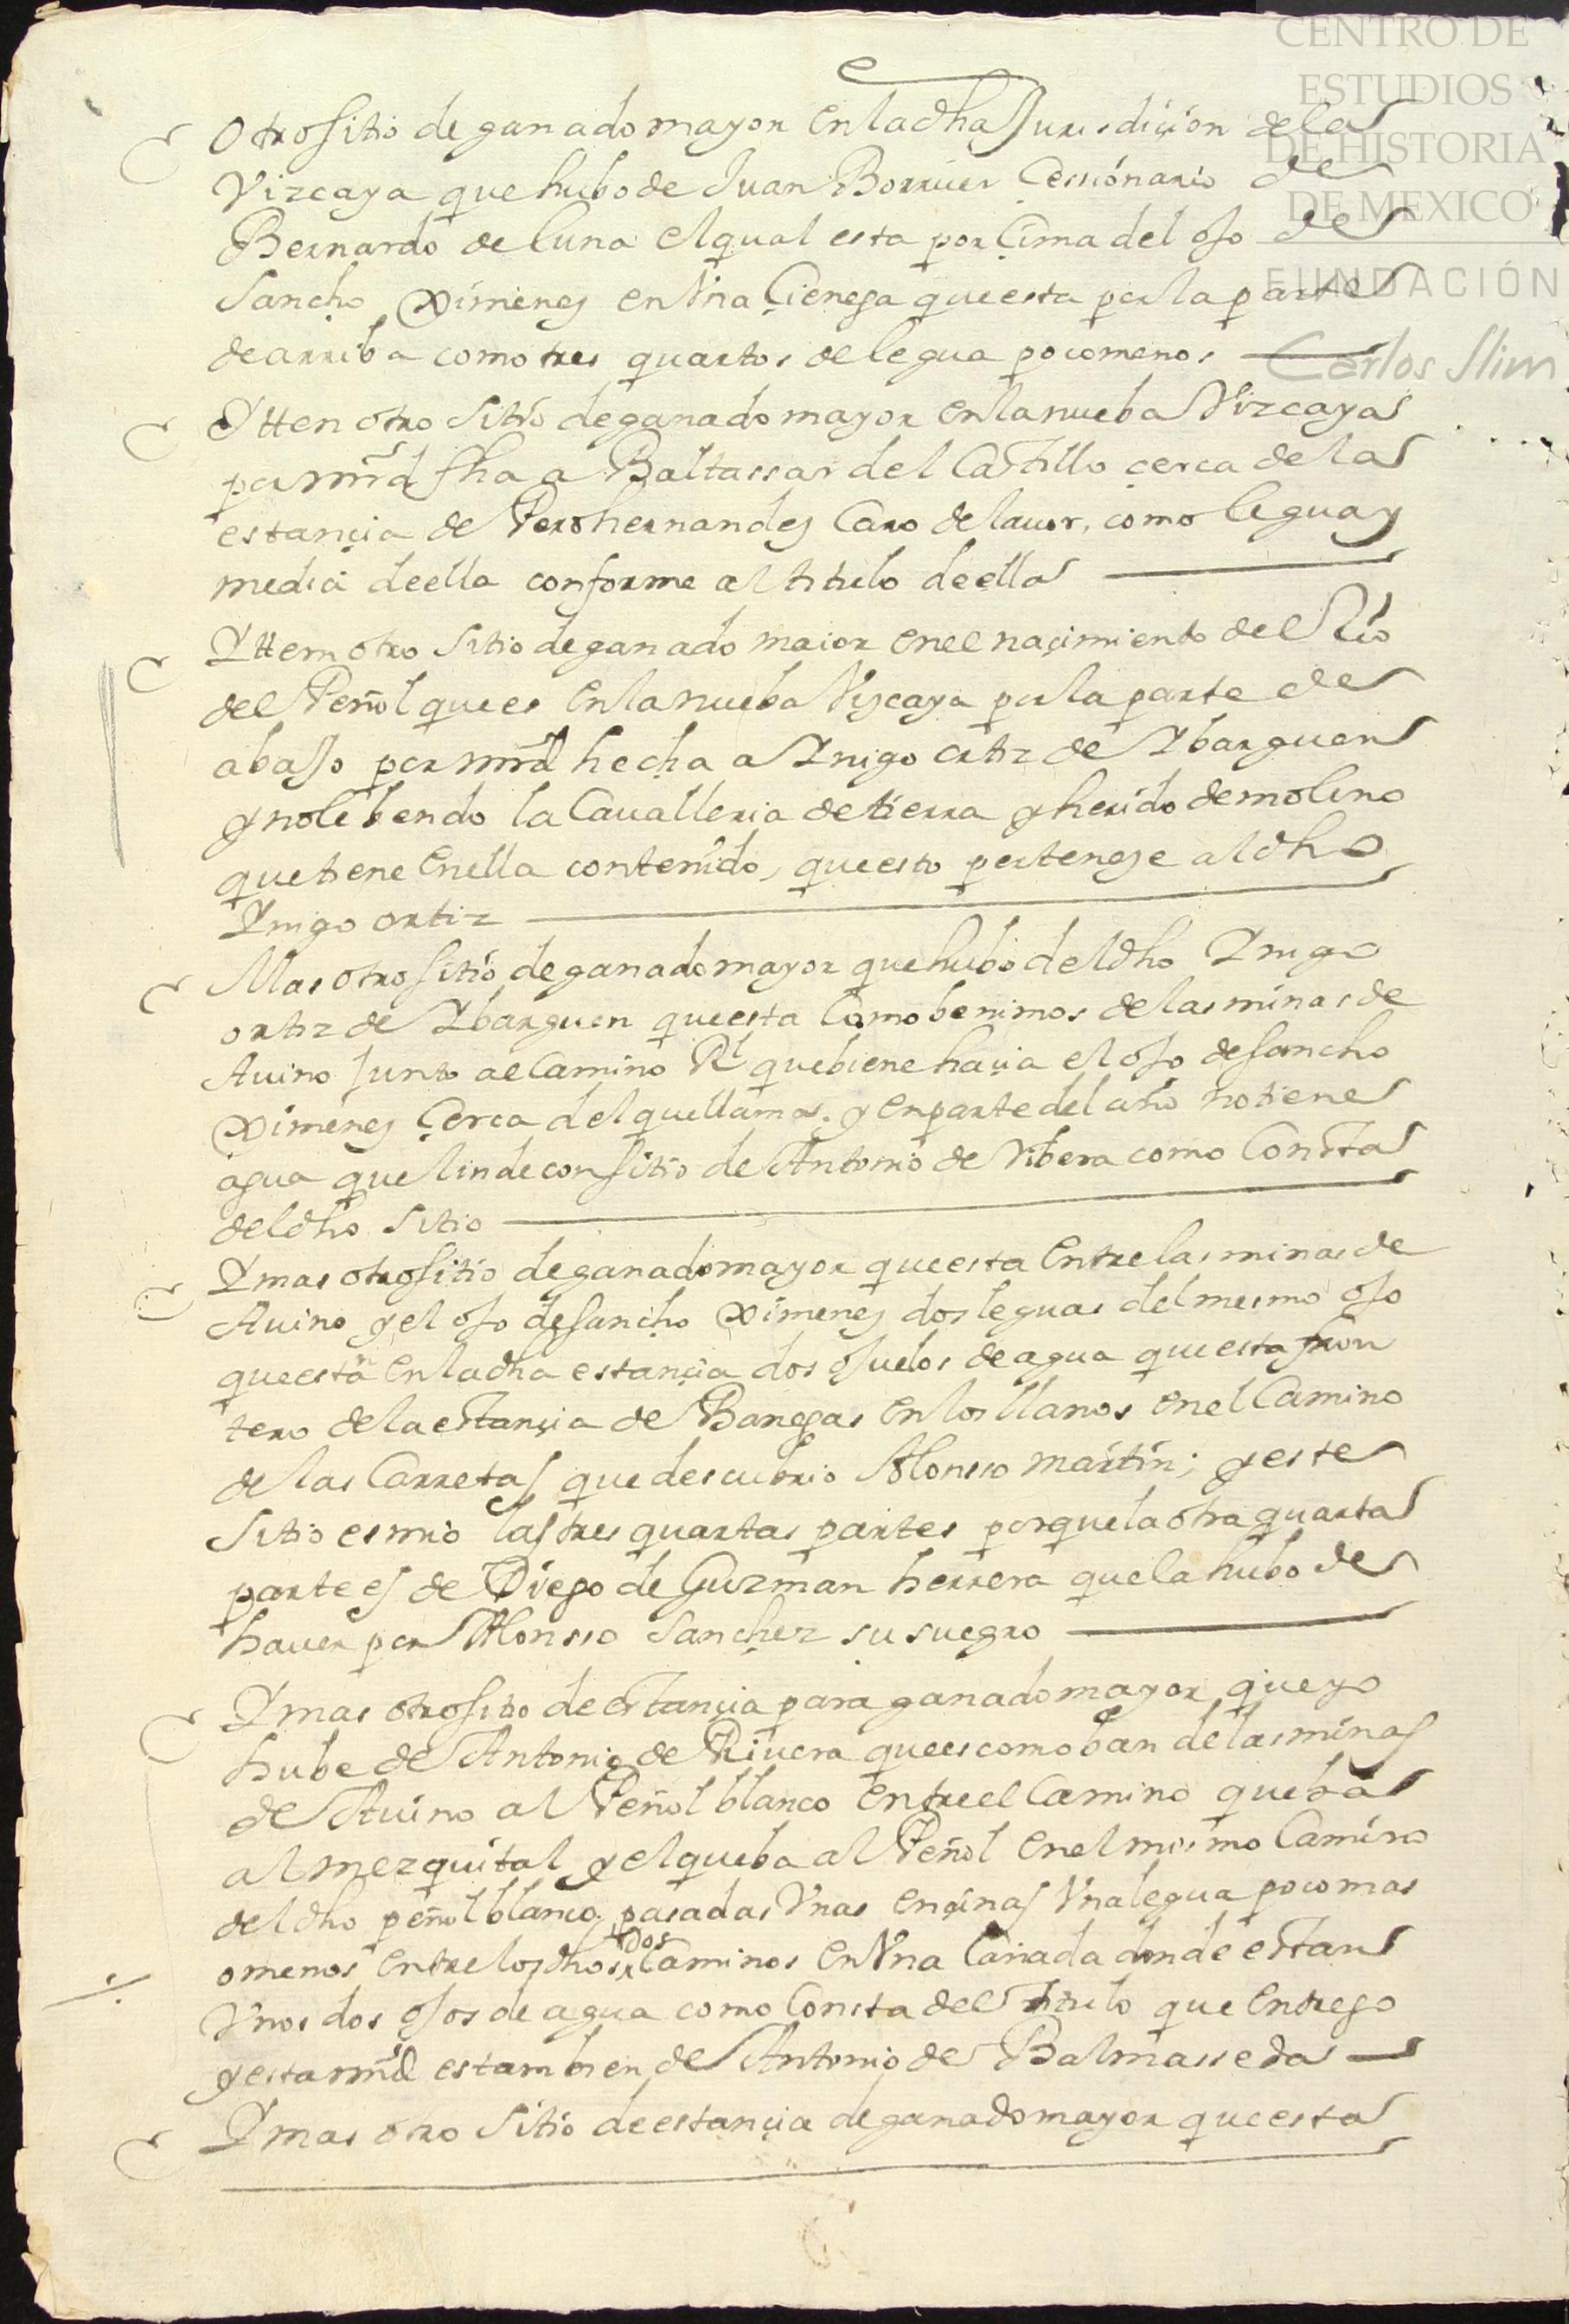 CENTRO DE
ESTUDIOS
DE HISTORIA
DE MEXICO
FUNDACIÓN
Carlos Slim
Otro sitio de ganado mayor en la dha Jurisdiçion de la
Vizcaya que hubo de Juan Borruer Cessionario de
Bernardo de luna el qual esta por Çima del ojo de
Sancho Ximenez en Vna Çienega que esta por la parte
de arriba como tres quartos de legua poco menos
Ytten otro sitio de ganado mayor en la nueba Vizcaya
por mrd fha a Baltassar del Castillo çerca de la
estançia de Pero hernandez Caro de lauor, como legua y
media de ella conforme al titulo de ella
Yttem otro sitio de ganado maior en el naçimiento del Rio
del Peñol que es en la nueba Vizcaya por la parte de
abajo por mrd hecha a Ynigo ortiz de Ybarguen
y no le bendo la Cavalleria de tierra y herido de molino
que tiene en ella contenido, que esto perteneçe al dho
Ynigo ortiz
Mas otro sitio de ganado mayor que hubo del dho Ynigo
ortiz de Ybarguen que esta Como benimos de las minas de
Avino junto al Camino Rl que biene haçia el ojo de sancho
Ximenez Çerca del que llama. y en parte del año no tiene
agua que linde con sitio de Antonio de Ribera como Consta
del dho sitio
Y mas otro sitio de ganado mayor que esta Entre las minas de
Avino y el ojo de sancho Ximenez dos leguas del mesmo ojo
que estan en la dha estançia dos ojuelos de agua que esta fron
tero de la estançia de Banegas en los llanos en el Camino
de las Carretas que descubrio Alonsso martin; y este
sitio es mio las tres quartas partes porque la otra quarta
parte es de Diego de Guzman herrera que la hubo de
haver por Alonsso sanchez su suegro
Y mas otro sitio de estançia para ganado mayor que yo
hube de Antonio de Rivera que es como ban de las minas
de Avino al Peñol blanco entre el Camino que ba
al mezquital y el que ba al Peñol en el mismo Camino
del dho peñol blanco, pasadas Vnas ençinas Vna legua poco mas
o menos entre los dhos Dos Caminos en Vna Cañada donde estan
Vnos dos ojos de agua como Consta del titulo que Entrego
y esta mrd es tambien de Antonio de Balmasseda
Y mas otro sitio de estançia de ganado mayor que esta